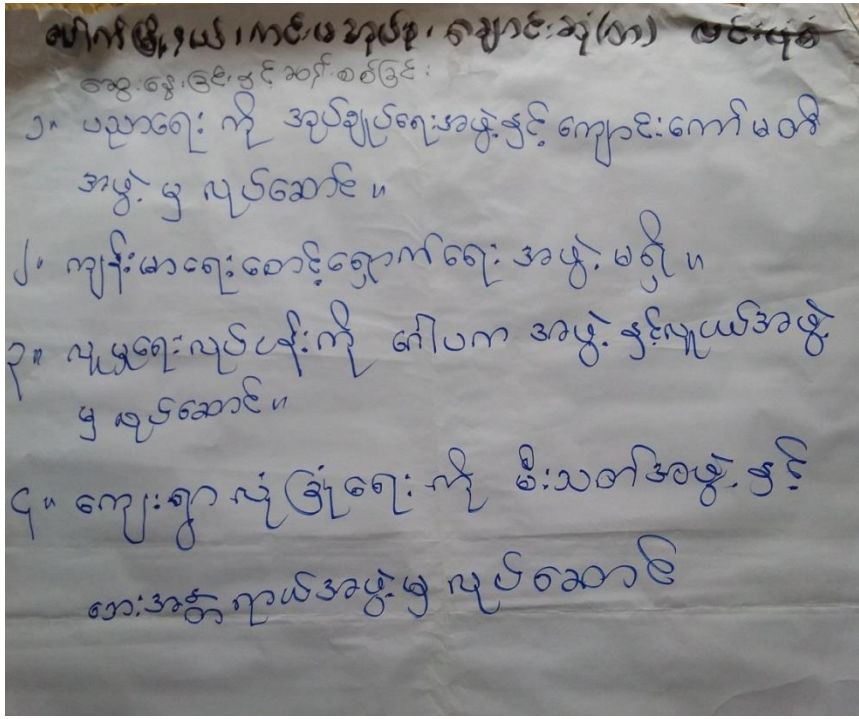 ပေါက်မြို့နယ်၊ ကင်းမအုပ်စု၊ ချောင်းဆုံ(ကာ)
ဆွေးနွေးခြင်းနှင့်ဆန်းစစ်ခြင်း
၁။ ပညာရေး ကို အုပ်ချုပ်ရေးအဖွဲ့နှင့် ကျောင်းကော်မတီ
အဖွဲ့ မှ လုပ်ဆောင်။
၂။ ကျန်းမာရေးစောင့်ရှောက်ရေး အဖွဲ့ မရှိ။
၃။ လူမှုရေးလုပ်ငန်းကို ဂေါပက အဖွဲ့ နှင့်လူငယ်အဖွဲ့
မှ လုပ်ဆောင်။
၄။ ကျေးရွာ လုံခြုံရေး ကို မီးသတ်အဖွဲ့ နှင့်
ဘေးအန္တရာယ်အဖွဲ့မှ လုပ်ဆောင်